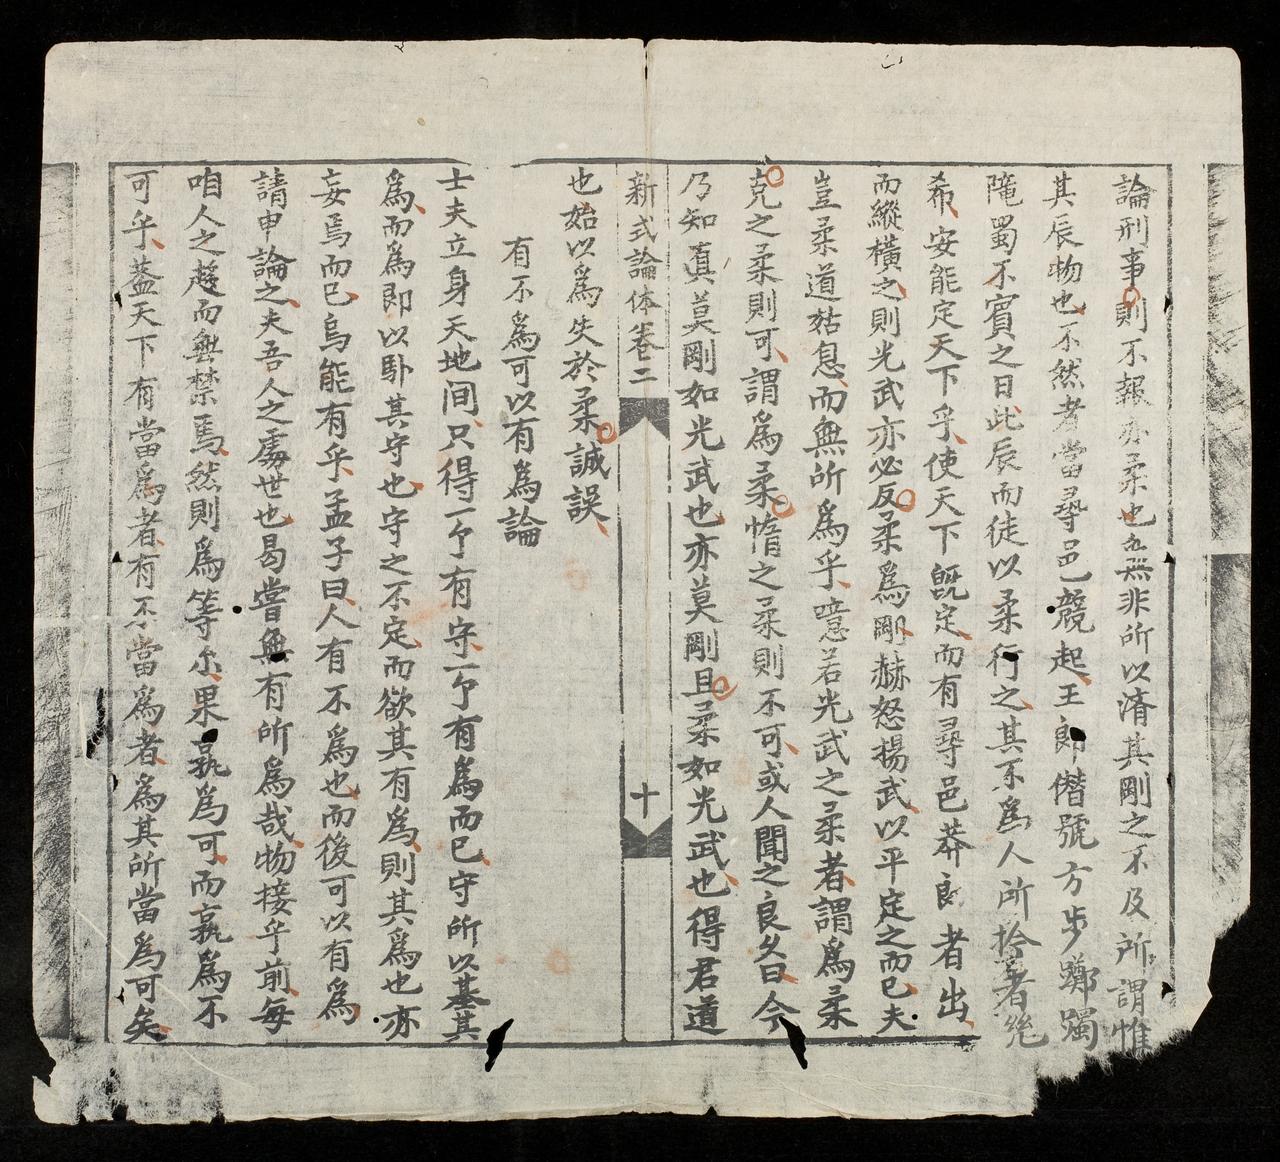 論刑事則不報亦柔也無非所以濟其剛之不及所謂惟
其辰物也不然者當尋邑競起王郎僭號方步躑躅
隴蜀不賓之日此辰而徒以柔行之其不爲人所拾者幾
希安能定天下乎使天下旣定而有尋邑莽良者出
而縱橫之則光武亦必反柔爲剛赫怒揚武以平定之而已夫
豈柔道姑息而無所爲乎噫若光武之柔者謂爲柔
克之柔則可謂爲柔惰之柔則不可或人聞之良久曰今
乃知眞莫剛如光武也亦莫剛且柔如光武也得君道
新式論体卷二
十
也始以爲失於柔誠誤
有不爲可以有爲論
士夫立身天地间只得一个有守一个有爲而已守所以基其
爲而爲即以卧其守也守之不定而欲其有爲則其爲也亦
妄焉而已烏能有乎孟子曰人有不爲也而後可以有爲
請申論之夫吾人之處世也曷嘗無有所爲哉物接乎前每
咱人之趍而無禁焉然則爲等尒果孰爲可而孰爲不
可乎蓋天下有當爲者有不當爲者爲其所當爲可矣